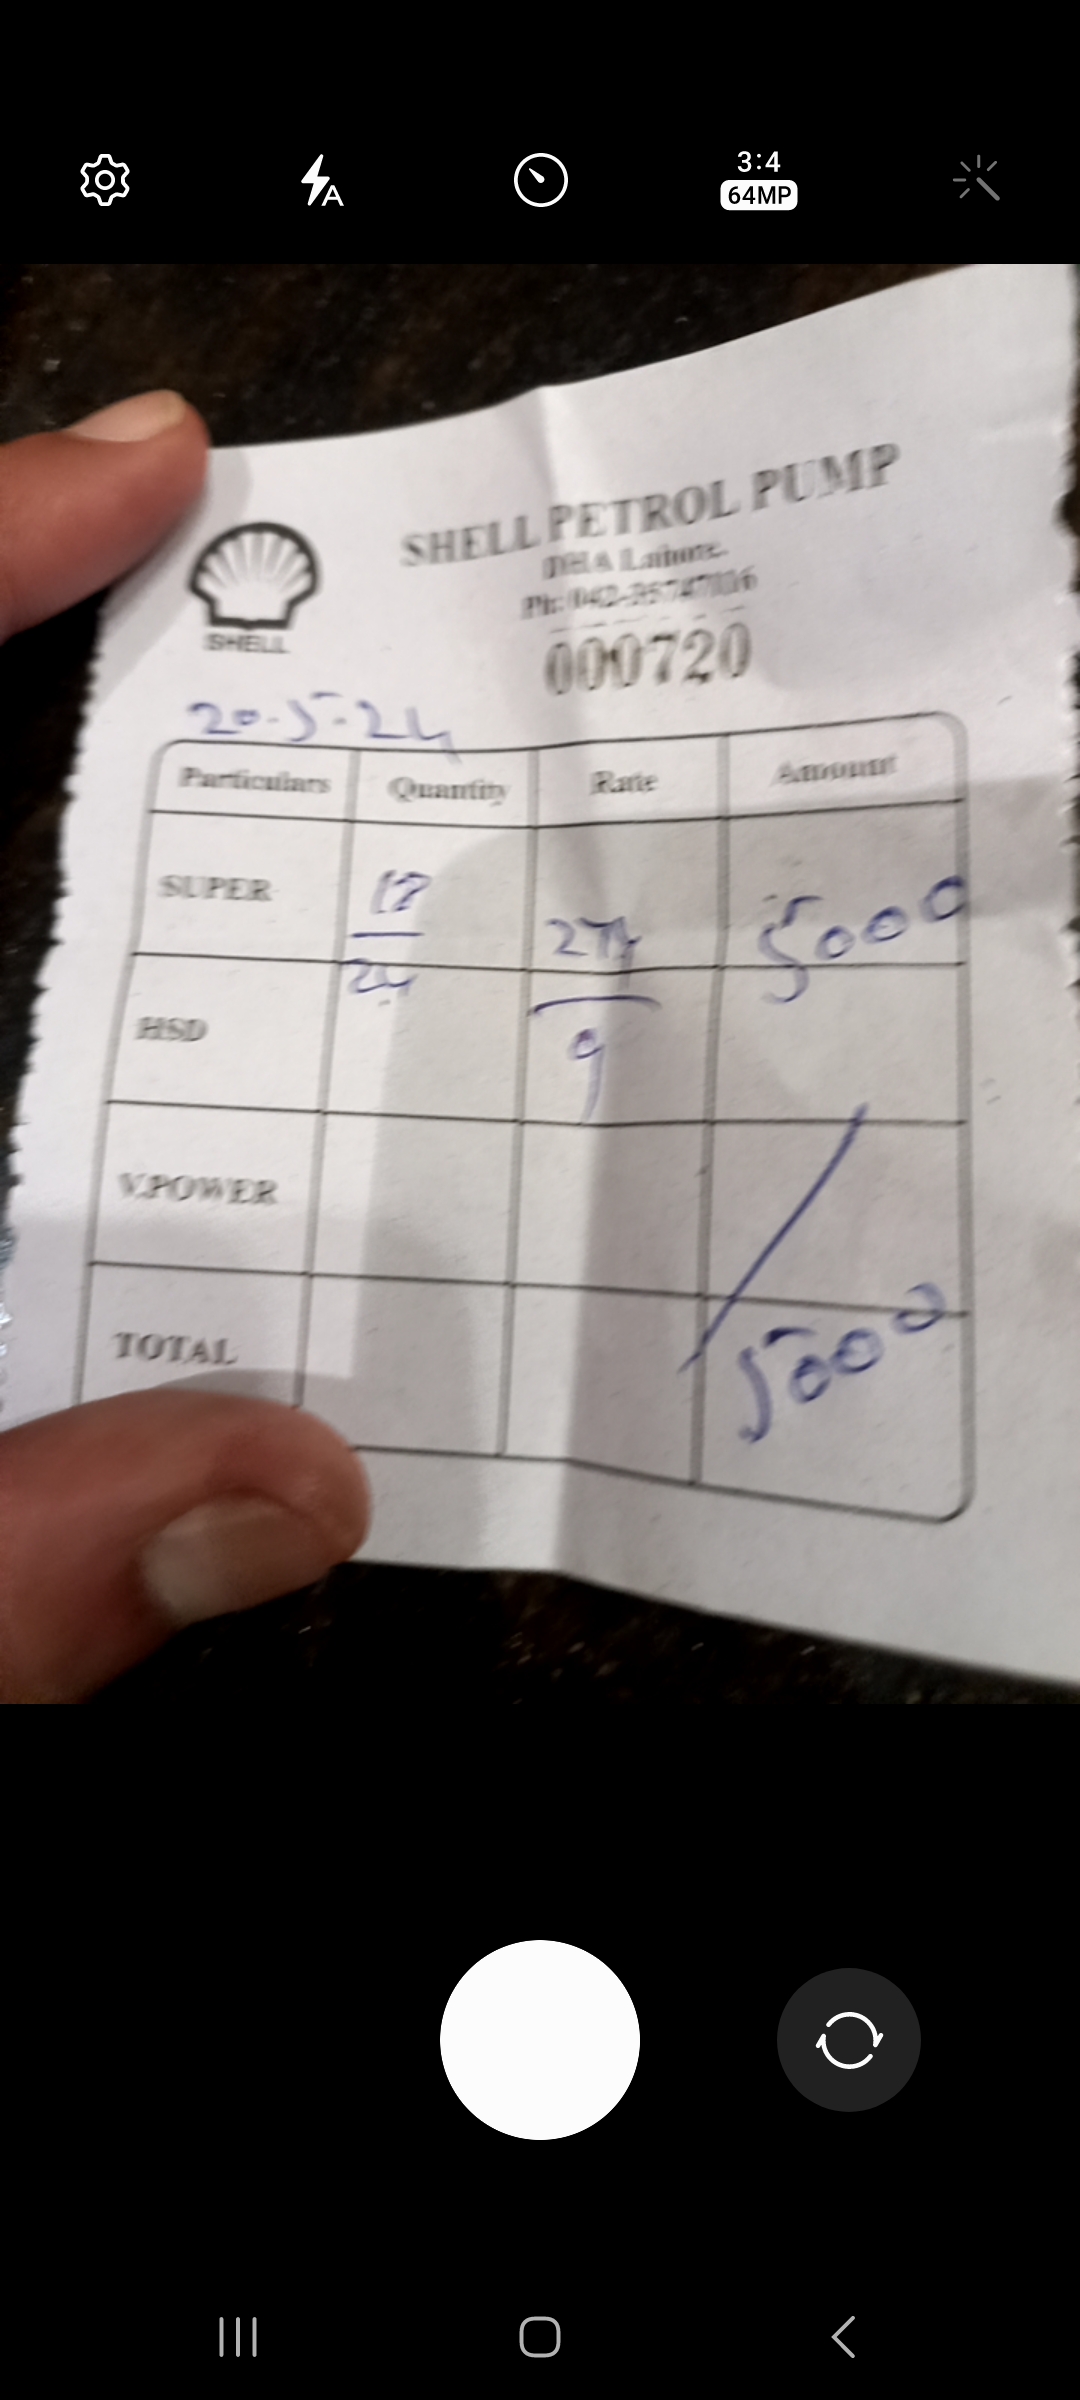 3:4
64MP
SHELL PETROL PUMP
DHA Lahore.
Ph: 042-35747116
SHELL
000720
20-5-24
Particulars Quantity Rate Amount
SUPER 18/24 274/9 5000
HSD
V.POWER
TOTAL 5000